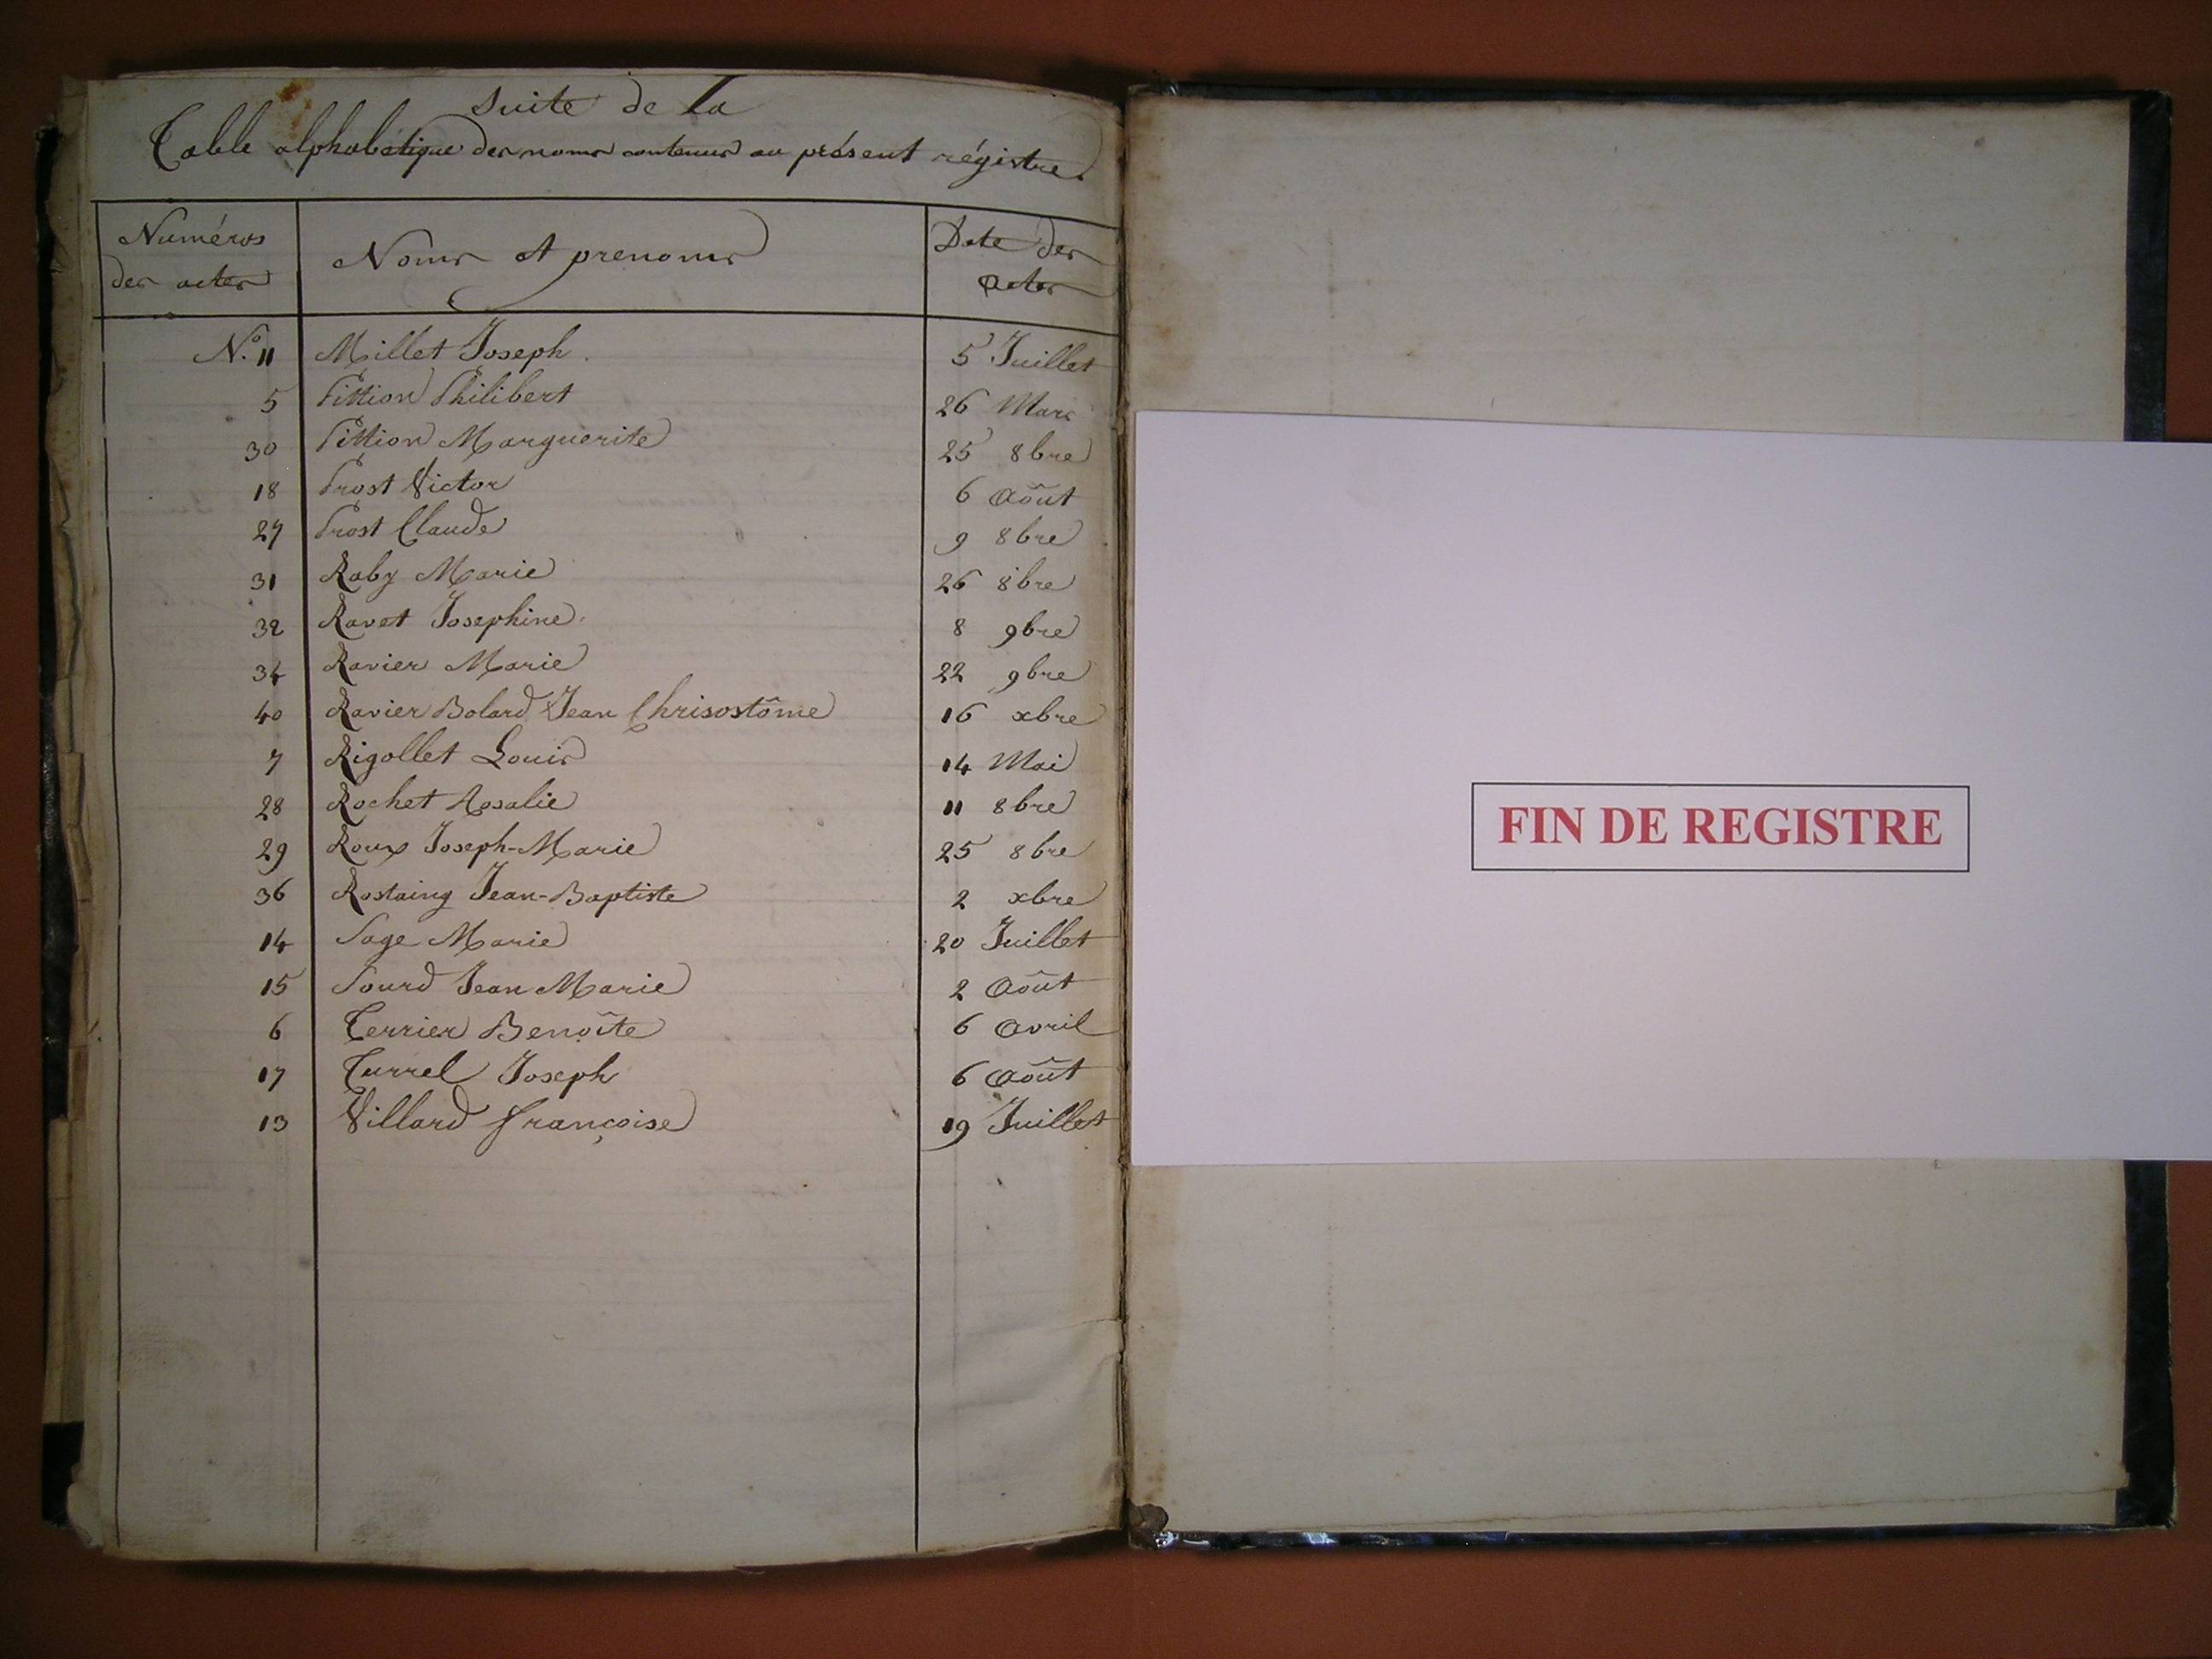 Suite de la
Table alphabétique des noms contenus au présent régistre.
Numéros des actes | Noms et prenoms | Date des actes
N.° 11 Millet Joseph. 5 Juillet
5 Pittion Philibert 26 Mars
30 Pittion Marguerite 25 8bre
18 Prost Victor 6 Août
27 Prost Claude 9 8bre
31 Raby Marie 26 8bre
32 Ravet Josephine. 8 9bre
34 Ravier Marie 22 9bre
40 Ravier Bolard Jean Chrisostôme 16 xbre
7 Rigollet Louis 14 Mai
28 Rochet Rosalie 11 8bre
29 Roux Joseph-Marie 25 8bre
36 Rostaing Jean-Baptiste 2 xbre
14 Sage Marie 20 Juillet
15 Sourd Jean Marie 2 Août
6 Terrier Benoîte 6 Avril
17 Turrel Joseph 6 Août
13 Villard françoise 19 Juillet
FIN DE REGISTRE